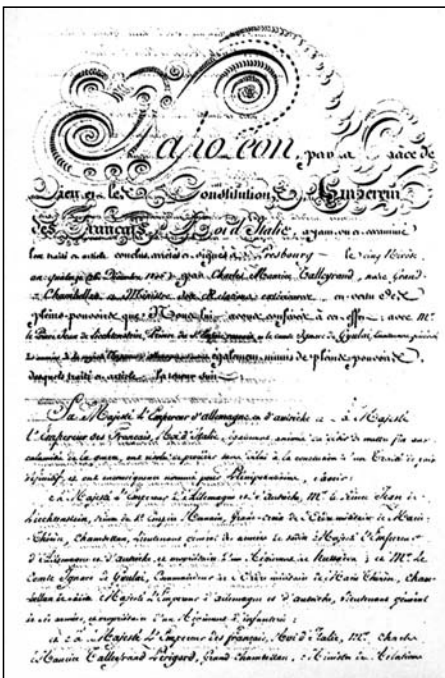 Napoléon, par la Grace de
Dieu et les Constitutions, Empereur
des Français, Roi d'Italie, ayant vu et examiné
le traité conclu, arrêté et signé à Presbourg le cinq Nivôse
an quatorze (26 Décembre 1805) par Charles Maurice Talleyrand, notre Grand
Chambellan et Ministre des Relations extérieures en vertu des
pleins-pouvoirs que Nous lui avons conférés à cet effet, avec Mr.
le Prince Jean de Liechtenstein, et le Comte Ignace de Gyulai,
également munis de pleins-pouvoirs,
duquel traité la teneur suit:
Sa Majesté l'Empereur d'allemagne et d'autriche et Sa Majesté
l'Empereur des Français, Roi d'Italie, également animés du désir de mettre fin aux
calamités de la guerre, ont résolu de procéder sans délai à la conclusion d'un Traité de paix
définitif, et ont en conséquence nommé pour Plénipotentiaires, savoir:
Sa Majesté l'Empereur d'Allemagne et d'Autriche, Mr. le Prince Jean de
Liechtenstein, Prince du St. Empire Romain, Grand-Croix de l'Ordre militaire de Marie-
Thérèse, Chambellan, Lieutenant général des armées de Sa dite Majesté l'Empereur
d'Allemagne et d'autriche, et propriétaire d'un Régiment de Hussards; et Mr. le
Comte Ignace de Gyulai, Commandeur de l'Ordre militaire de Marie Thérèse, Cham-
bellan de Sa dite Majesté l'Empereur d'allemagne et d'autriche, Lieutenant général
de ses armées, et propriétaire d'un Régiment d'infanterie;
et Sa Majesté l'Empereur des français, Roi d'Italie, Mr. Charles
Maurice Talleyrand Périgord, Grand Chambellan, Ministre des Relations